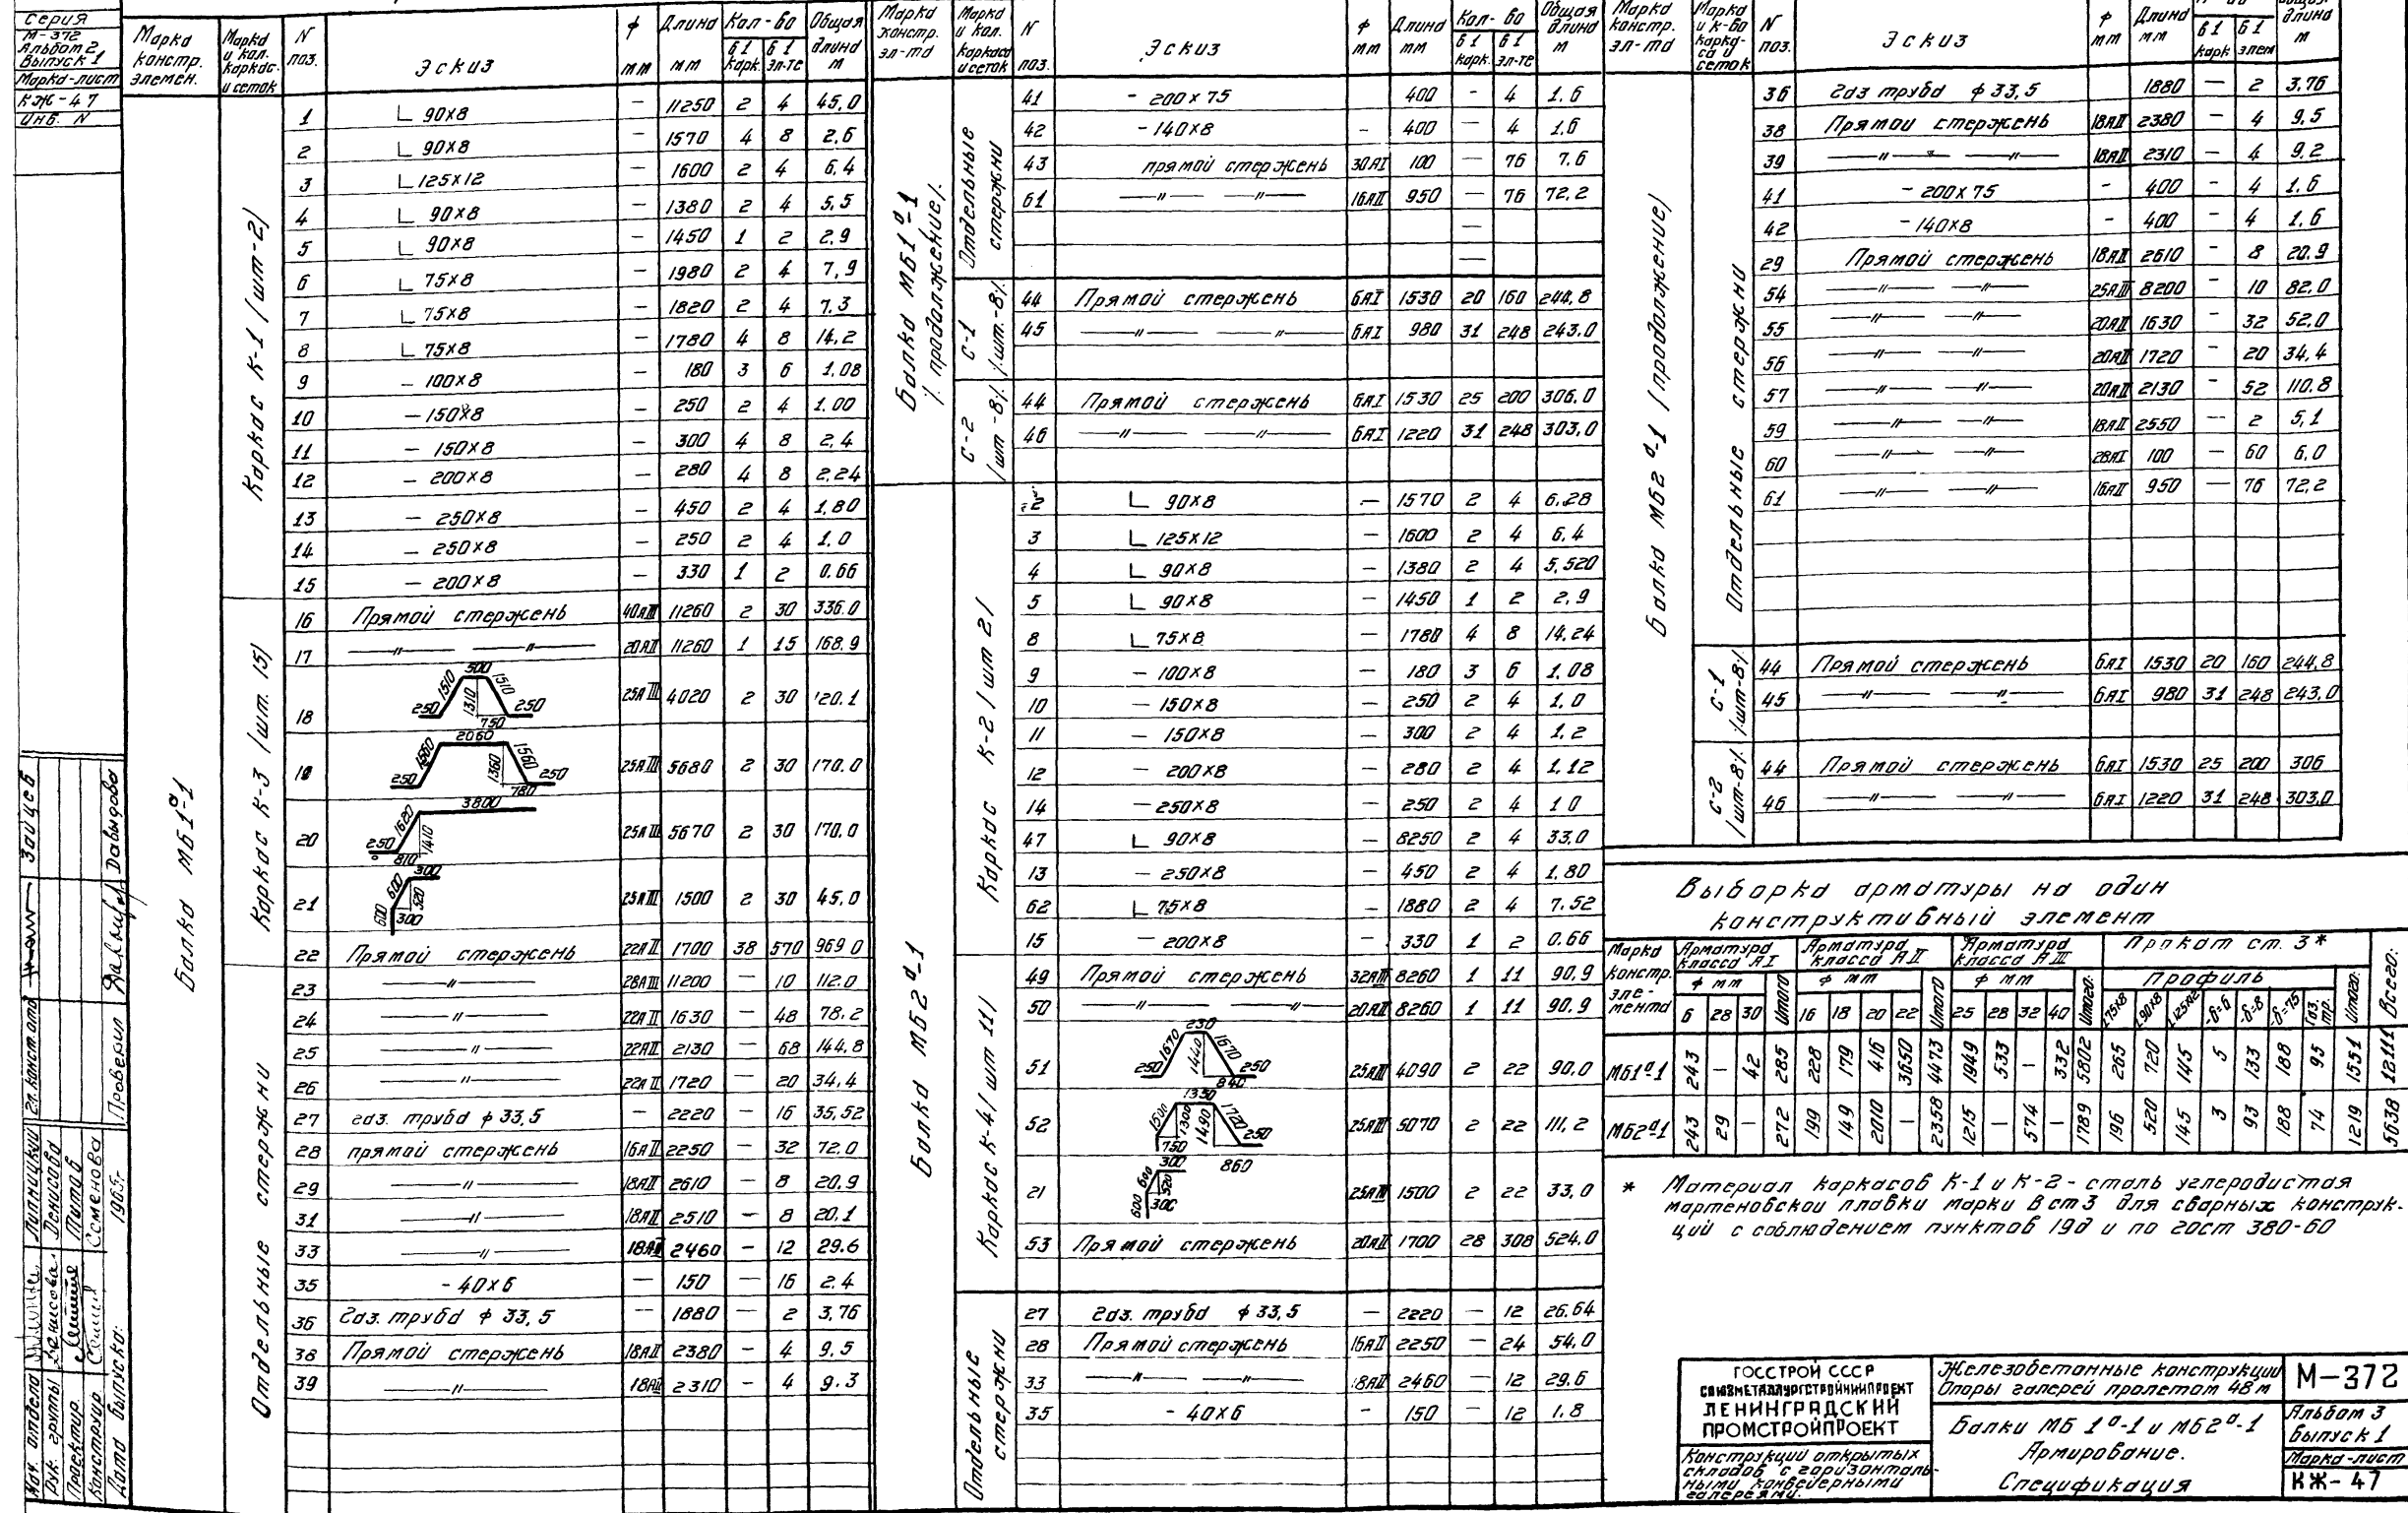 Серия
М-372
Альбом 2
Выпуск 1
Марка-лист
КЖ-47
Инв. N
Марка констр. элемен. | Марка и кол. каркас. и сеток | N поз. | Эскиз | ф мм | Длина мм | Кол-во в 1 карк. | в 1 эл-те | Общая длина м
Балка МБ1ᵃ-1
Каркас К-1 /шт-2/
1 | L 90х8 | — | 11250 | 2 | 4 | 45,0
2 | L 90х8 | — | 1570 | 4 | 8 | 2,6
3 | L 125х12 | — | 1600 | 2 | 4 | 6,4
4 | L 90х8 | — | 1380 | 2 | 4 | 5,5
5 | L 90х8 | — | 1450 | 1 | 2 | 2,9
6 | L 75х8 | — | 1980 | 2 | 4 | 7,9
7 | L 75х8 | — | 1820 | 2 | 4 | 7,3
8 | L 75х8 | — | 1780 | 4 | 8 | 14,2
9 | — 100х8 | — | 180 | 3 | 6 | 1,08
10 | — 150х8 | — | 250 | 2 | 4 | 1,00
11 | — 150х8 | — | 300 | 4 | 8 | 2,4
12 | — 200х8 | — | 280 | 4 | 8 | 2,24
13 | — 250х8 | — | 450 | 2 | 4 | 1,80
14 | — 250х8 | — | 250 | 2 | 4 | 1,0
15 | — 200х8 | — | 330 | 1 | 2 | 0,66
Каркас К-3 /шт. 15/
16 | Прямой стержень | 40АIII | 11260 | 2 | 30 | 336.0
17 | —"— —"— | 20АII | 11260 | 1 | 15 | 168.9
18 | 250 1510 500 1510 1310 750 250 | 25АIII | 4020 | 2 | 30 | 120.1
19 | 250 1560 2060 1360 1560 780 250 | 25АIII | 5680 | 2 | 30 | 170.0
20 | 250 1620 3800 1410 810 | 25АIII | 5670 | 2 | 30 | 170.0
21 | 600 600 300 520 300 | 25АIII | 1500 | 2 | 30 | 45,0
22 | Прямой стержень | 22АII | 1700 | 38 | 570 | 969 0
Отдельные стержни
23 | —"— | 28АIII | 11200 | — | 10 | 112.0
24 | —"— | 22АII | 1630 | — | 48 | 78.2
25 | —"— | 22АII | 2130 | — | 68 | 144,8
26 | —"— | 22АII | 1720 | — | 20 | 34,4
27 | газ. труба ф 33,5 | — | 2220 | — | 16 | 35,52
28 | прямой стержень | 16АII | 2250 | — | 32 | 72.0
29 | —"— | 18АII | 2610 | — | 8 | 20,9
31 | —"— | 18АII | 2510 | — | 8 | 20,1
33 | —"— | 18АII | 2460 | — | 12 | 29.6
35 | - 40х6 | — | 150 | — | 16 | 2.4
36 | Газ. труба ф 33,5 | — | 1880 | — | 2 | 3,76
38 | Прямой стержень | 18АII | 2380 | - | 4 | 9.5
39 | —"— | 18АII | 2310 | - | 4 | 9.3
Марка констр. эл-та | Марка и кол. каркаса и сеток | N поз. | Эскиз | ф мм | Длина мм | Кол-во в 1 карк. | в 1 эл-те | Общая длина м
Балка МБ1ᵃ-1 /продолжение/.
Отдельные стержни
41 | - 200х75 | 400 | - | 4 | 1.6
42 | - 140х8 | - | 400 | — | 4 | 1,6
43 | прямой стержень | 30АI | 100 | — | 76 | 7.6
61 | —"— —"— | 16АII | 950 | — | 76 | 72,2
С-1 /шт.-8/.
44 | Прямой стержень | 6АI | 1530 | 20 | 160 | 244,8
45 | —"— —"— | 6АI | 980 | 31 | 248 | 243.0
С-2 /шт-8/.
44 | Прямой стержень | 6АI | 1530 | 25 | 200 | 306,0
46 | —"— —"— | 6АI | 1220 | 31 | 248 | 303,0
Балка МБ2ᵃ-1
Каркас К-2 /шт 2/
2 | L 90х8 | — | 1570 | 2 | 4 | 6,28
3 | L 125х12 | — | 1600 | 2 | 4 | 6,4
4 | L 90х8 | — | 1380 | 2 | 4 | 5,520
5 | L 90х8 | — | 1450 | 1 | 2 | 2,9
8 | L 75х8 | — | 1780 | 4 | 8 | 14,24
9 | — 100х8 | — | 180 | 3 | 6 | 1,08
10 | — 150х8 | — | 250 | 2 | 4 | 1,0
11 | — 150х8 | — | 300 | 2 | 4 | 1.2
12 | — 200х8 | — | 280 | 2 | 4 | 1,12
14 | — 250х8 | — | 250 | 2 | 4 | 1 0
47 | L 90х8 | — | 8250 | 2 | 4 | 33,0
13 | — 250х8 | — | 450 | 2 | 4 | 1,80
62 | L 75х8 | — | 1880 | 2 | 4 | 7.52
15 | — 200х8 | — | 330 | 1 | 2 | 0.66
Каркас К-4 /шт 11/
49 | Прямой стержень | 32АIII | 8260 | 1 | 11 | 90,9
50 | —"— —"— | 20АII | 8260 | 1 | 11 | 90,9
51 | 250 1670 230 1440 1670 840 250 | 25АIII | 4090 | 2 | 22 | 90,0
52 | 1500 1350 1300 1490 1720 250 750 860 | 25АIII | 5070 | 2 | 22 | 111,2
21 | 600 600 300 520 300 | 25АIII | 1500 | 2 | 22 | 33,0
53 | Прямой стержень | 20АII | 1700 | 28 | 308 | 524.0
Отдельные стержни
27 | Газ. труба ф 33,5 | — | 2220 | — | 12 | 26.64
28 | Прямой стержень | 16АII | 2250 | — | 24 | 54,0
33 | —"— —"— | 18АII | 2460 | — | 12 | 29,6
35 | - 40х6 | - | 150 | — | 12 | 1.8
Марка констр. эл-та | Марка и к-во каркаса и сеток | N поз. | Эскиз | ф мм | Длина мм | в 1 карк | в 1 элем | длина м
Балка МБ2ᵃ-1 /продолжение/
Отдельные стержни
36 | Газ труба ф 33,5 | 1880 | — | 2 | 3.76
38 | Прямой стержень | 18АII | 2380 | — | 4 | 9.5
39 | —"— —"— | 18АII | 2310 | - | 4 | 9.2
41 | - 200х75 | - | 400 | - | 4 | 1.6
42 | - 140х8 | - | 400 | - | 4 | 1,6
29 | Прямой стержень | 18АII | 2610 | - | 8 | 20.9
54 | —"— —"— | 25АIII | 8200 | - | 10 | 82,0
55 | —"— —"— | 20АII | 1630 | - | 32 | 52,0
56 | —"— —"— | 20АII | 1720 | - | 20 | 34,4
57 | —"— —"— | 20АII | 2130 | - | 52 | 110.8
59 | —"— —"— | 18АII | 2550 | — | 2 | 5,1
60 | —"— —"— | 28АI | 100 | — | 60 | 6,0
61 | —"— —"— | 16АII | 950 | — | 76 | 72,2
С-1 /шт-8/.
44 | Прямой стержень | 6АI | 1530 | 20 | 160 | 244,8
45 | —"— —"— | 6АI | 980 | 31 | 248 | 243,0
С-2 /шт-8/.
44 | Прямой стержень | 6АI | 1530 | 25 | 200 | 306
46 | —"— —"— | 6АI | 1220 | 31 | 248 | 303,0
Выборка арматуры на один
конструктивный элемент
Марка констр. элемента | Арматура класса АI | Арматура класса АII | Арматура класса АIII | Прокат ст. 3* | Всего:
ф мм | ф мм | ф мм | Профиль
6 | 28 | 30 | Итого | 16 | 18 | 20 | 22 | Итого | 25 | 28 | 32 | 40 | Итого: | L75х8 | L90х8 | L125х12 | -δ=6 | -δ=8 | -δ=75 | Газ. тр. | Итого:
МБ1ᵃ-1 | 243 | — | 42 | 285 | 228 | 179 | 416 | 3650 | 4473 | 1949 | 533 | — | 332 | 5802 | 265 | 720 | 145 | 5 | 133 | 188 | 95 | 1551 | 12.111
МБ2ᵃ-1 | 243 | 29 | — | 272 | 199 | 149 | 2010 | — | 2358 | 1215 | — | 574 | — | 1789 | 196 | 520 | 145 | 3 | 93 | 188 | 74 | 1219 | 5638
* Материал каркасов К-1 и К-2 - сталь углеродистая
мартеновской плавки марки В ст 3 для сварных конструк-
ций с соблюдением пунктов 19д и по гост 380-60
ГОССТРОЙ СССР
СОЮЗМЕТАЛЛУРГСТРОЙНИИПРОЕКТ
ЛЕНИНГРАДСКИЙ
ПРОМСТРОЙПРОЕКТ
Конструкции открытых
складов с горизонталь-
ными конвейерными
галереями.
Железобетонные конструкции
Опоры галерей пролетом 48 м
Балки МБ 1ᵃ-1 и МБ2ᵃ-1
Армирование.
Спецификация
М-372
Альбом 3
Выпуск 1
Марка-лист
КЖ-47
Нач. отдела Липницкий
Рук. группы Денисова
Проектир. Титов
Конструир. Семенова
Дата выпуска: 1965г.
Гл. конст. отд Зайцев
Проверил Давыдова